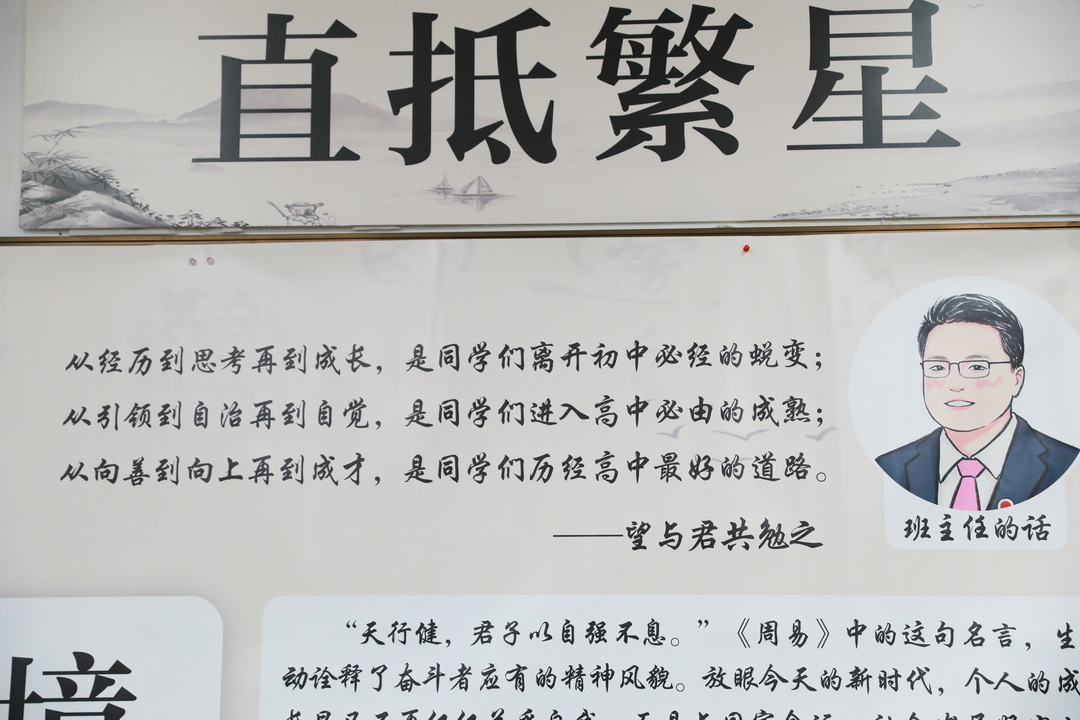 直抵繁星
从经历到思考再到成长，是同学们离开初中必经的蜕变；
从引领到自治再到自觉，是同学们进入高中必由的成熟；
从向善到向上再到成才，是同学们历经高中最好的道路。
——望与君共勉之
班主任的话
“天行健，君子以自强不息。”《周易》中的这句名言，生
动诠释了奋斗者应有的精神风貌。放眼今天的新时代，个人的成